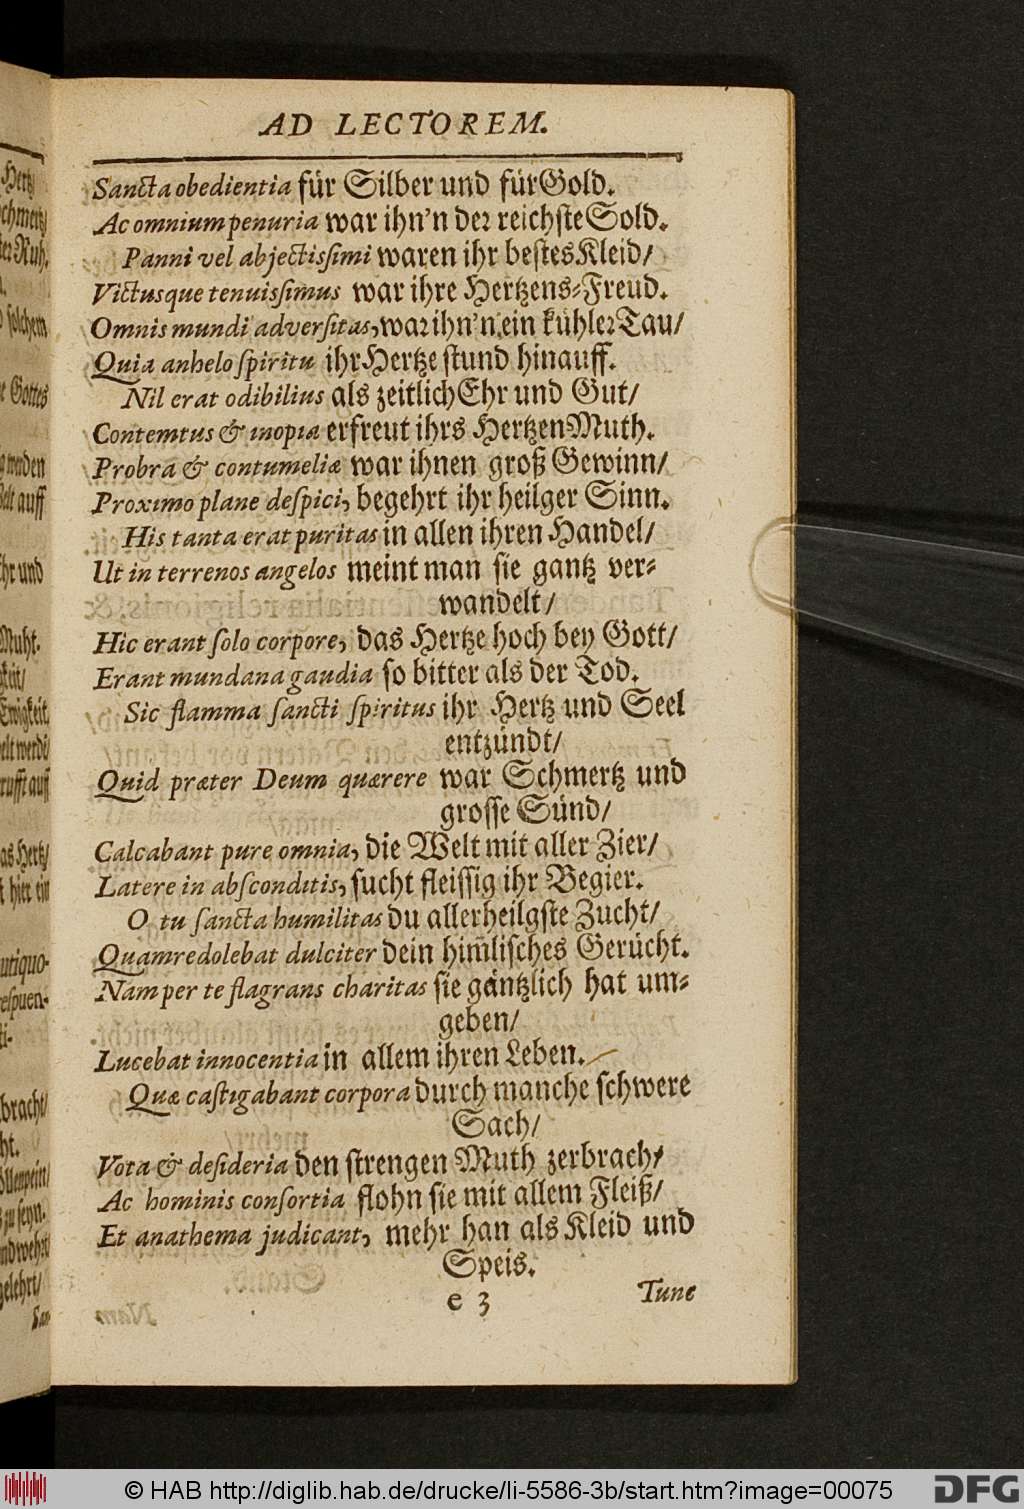 AD LECTOREM.
Sancta obedientia für Silber und für Gold.
Ac omnium penuria war ihn'n der reichste Sold.
Panni vel abjectissimi waren ihr bestes Kleid/
Victusque tenuissimus war ihre Hertzens-Freud.
Omnis mundi adversitas, war ihn'n ein kühler Tau/
Quia anhelo spiritu ihr Hertze stund hinauff.
Nil erat odibilius als zeitlich Ehr und Gut/
Contemtus & inopia erfreut ihrs Hertzen Muth.
Probra & contumeliæ war ihnen groß Gewinn/
Proximo plane despici, begehrt ihr heilger Sinn.
His tanta erat puritas in allen ihren Handel/
Ut in terrenos angelos meint man sie gantz ver-
wandelt/
Hic erant solo corpore, das Hertze hoch bey Gott/
Erant mundana gaudia so bitter als der Tod.
Sic flamma sancti spiritus ihr Hertz und Seel
entzündt/
Quid præter Deum quærere war Schmertz und
grosse Sünd/
Calcabant pure omnia, die Welt mit aller Zier/
Latere in absconditis, sucht fleissig ihr Begier.
O tu sancta humilitas du allerheilgste Zucht/
Quam redolebat dulciter dein him̃lisches Gerücht.
Nam per te flagrans charitas sie gäntzlich hat um-
geben/
Lucebat innocentia in allem ihren Leben.
Quæ castigabant corpora durch manche schwere
Sach/
Vota & desideria den strengen Muth zerbrach/
Ac hominis consortia flohn sie mit allem Fleiß/
Et anathema judicant, mehr han als Kleid und
Speis.
e 3
Tunc
© HAB http://diglib.hab.de/drucke/li-5586-3b/start.htm?image=00075
DFG